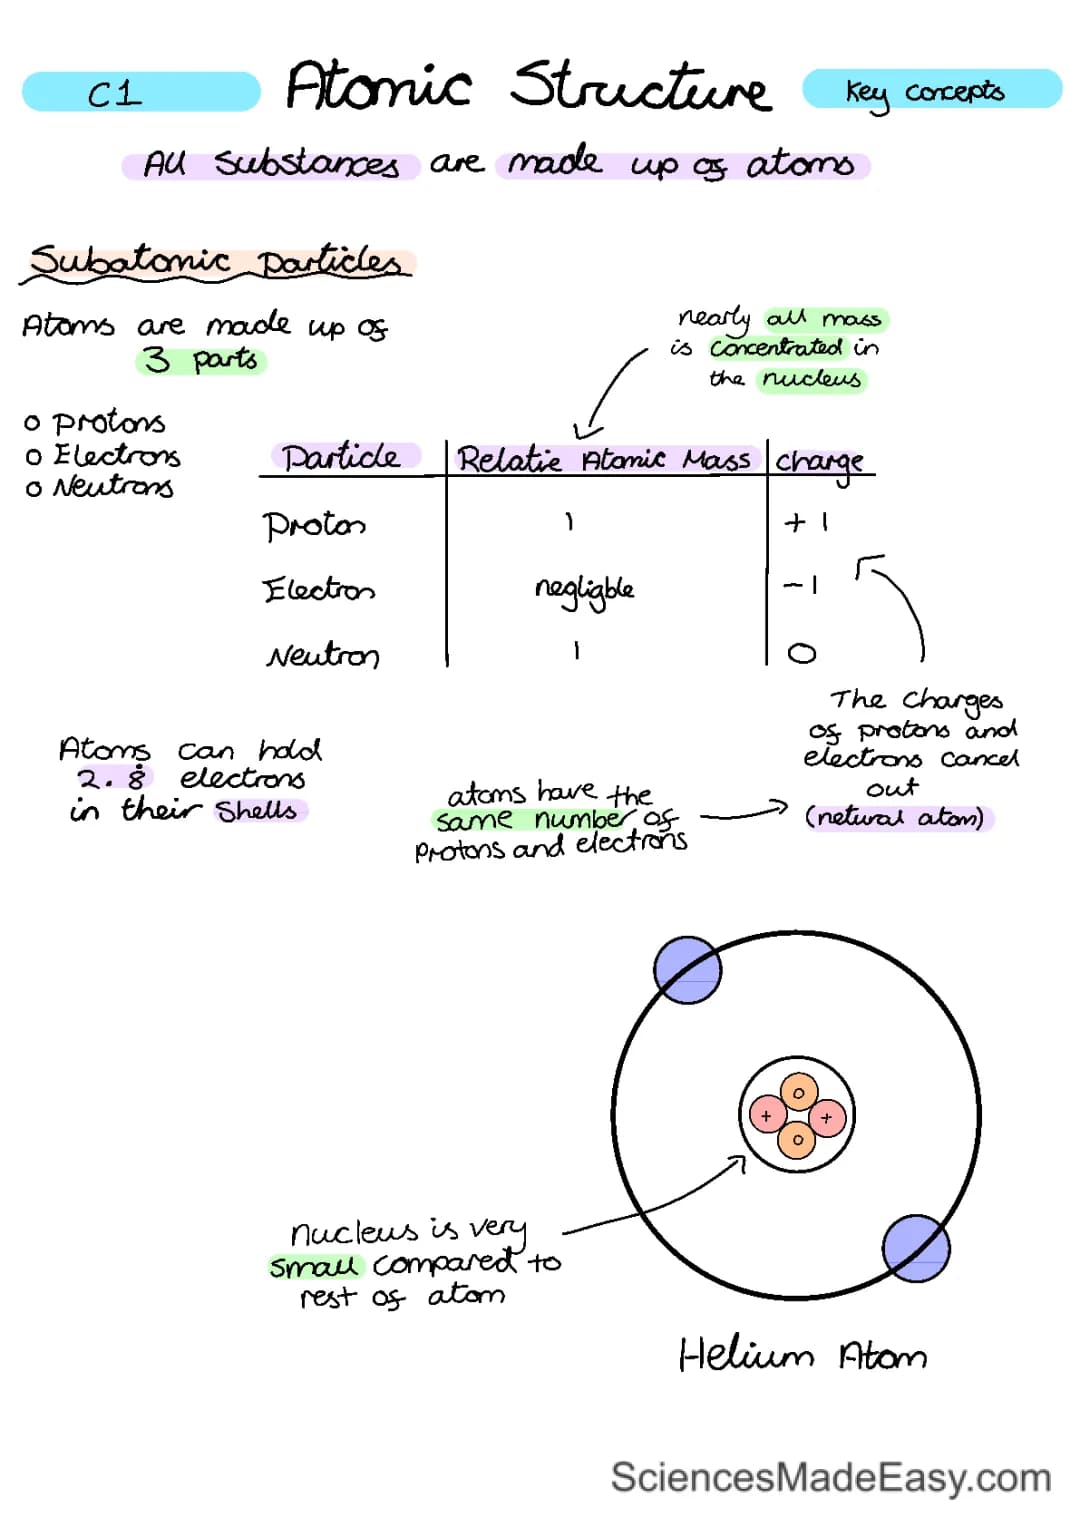 C1
Atomic Structure
Key concepts
All substances are made up of atoms
Subatomic Particles
Atoms are made up of
3 parts
o Protons
o Electrons
o Neutrons
nearly all mass
is concentrated in
the nucleus
Particle Relatie Atomic Mass charge
Proton 1 +1
Electron negligble -1
Neutron 1 0
The Charges
of protons and
electrons cancel
out
(netural atom)
Atoms can hold
2.8 electrons
in their shells
atoms have the
same number of
protons and electrons
+ o + o
nucleus is very
small compared to
rest of atom
Helium Atom
SciencesMadeEasy.com